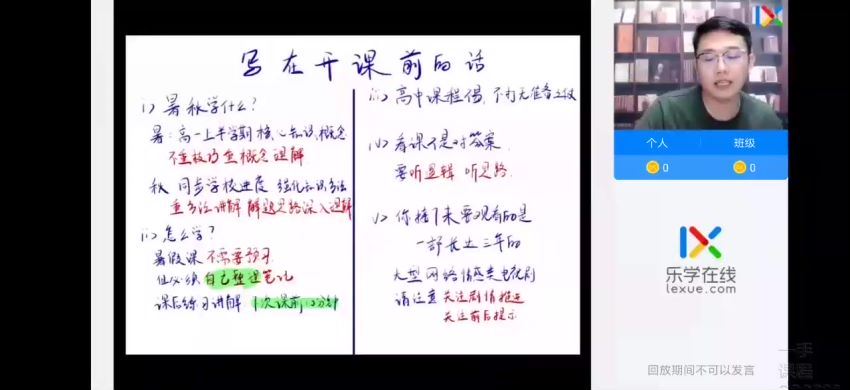 写在开课前的话
i) 暑秋学什么?
暑: 高一上半学期核心知识、概念
不重技巧重概念理解
秋 同步学校进度 强化知识方法
重方法讲解 解题思路深入理解
ii) 怎么学?
暑假课 不需要预习
但必须 自己整理笔记
课后练习讲解 1次课前, 2分钟
iii) 高中课程得 不打无准备之仗
iv) 看课不是对答案
要听逻辑 听思路
v) 你接下来要观看的是
一部长达三年的
大型网络情感类电视剧
请注意 关注剧情推进
关注前后提示
个人 班级
0 0
乐学在线
lexue.com
回放期间不可以发言
一手
课程